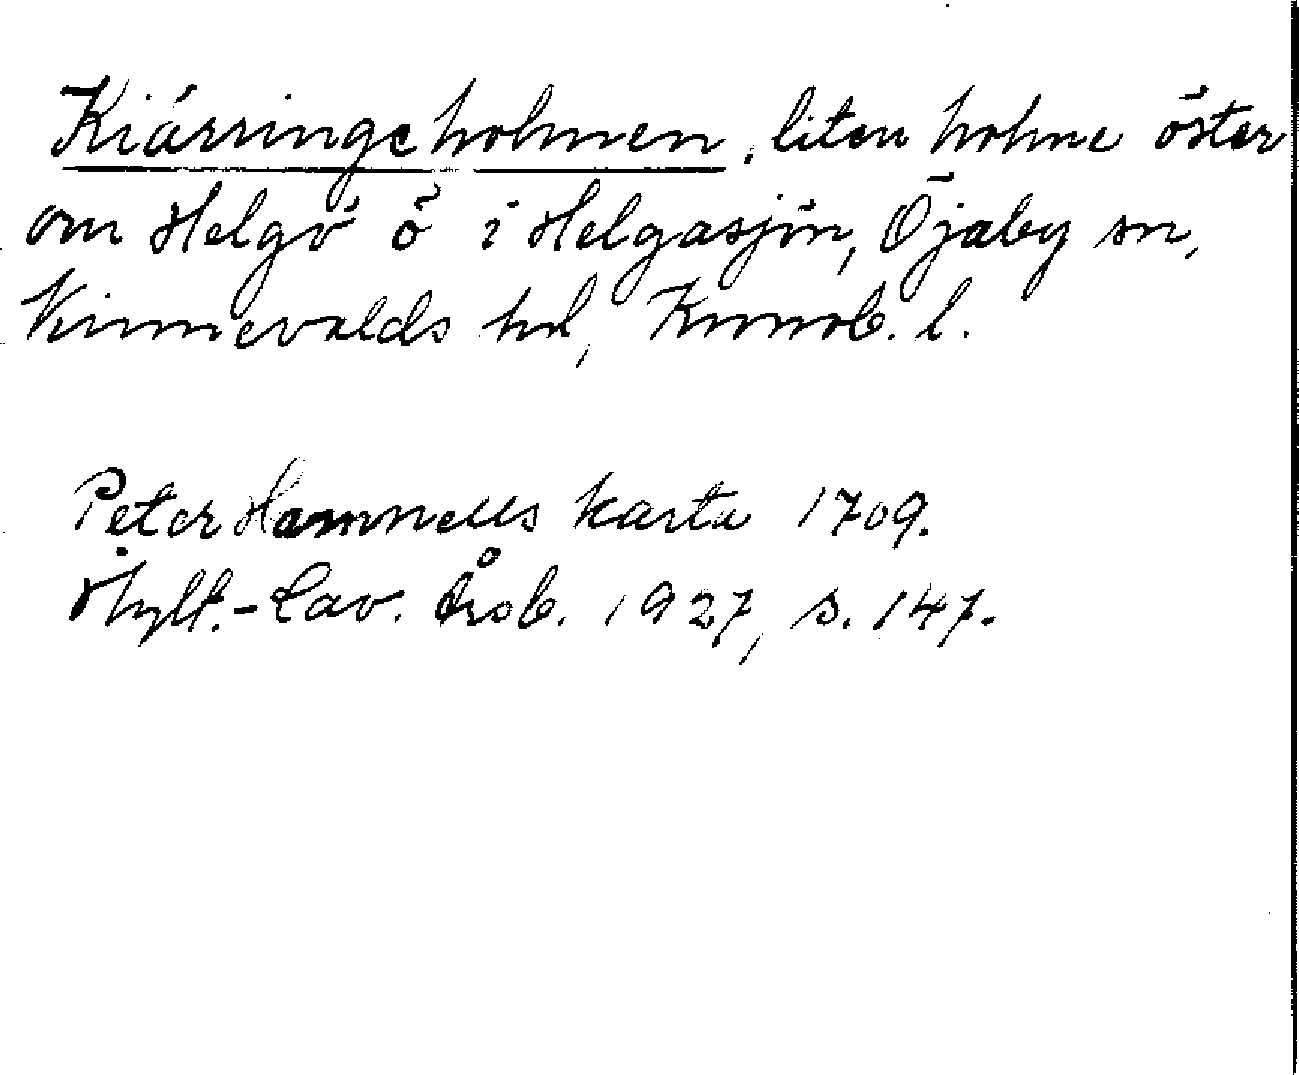 Kiärringeholmen, liten holme öster
om Helgö ö i Helgasjön, Öjaby sn,
Kinnevalds hd, Kronob. l.
Peter Hammells karta 1709.
Hylt.-Cav. Årsb. 1927, s. 147.